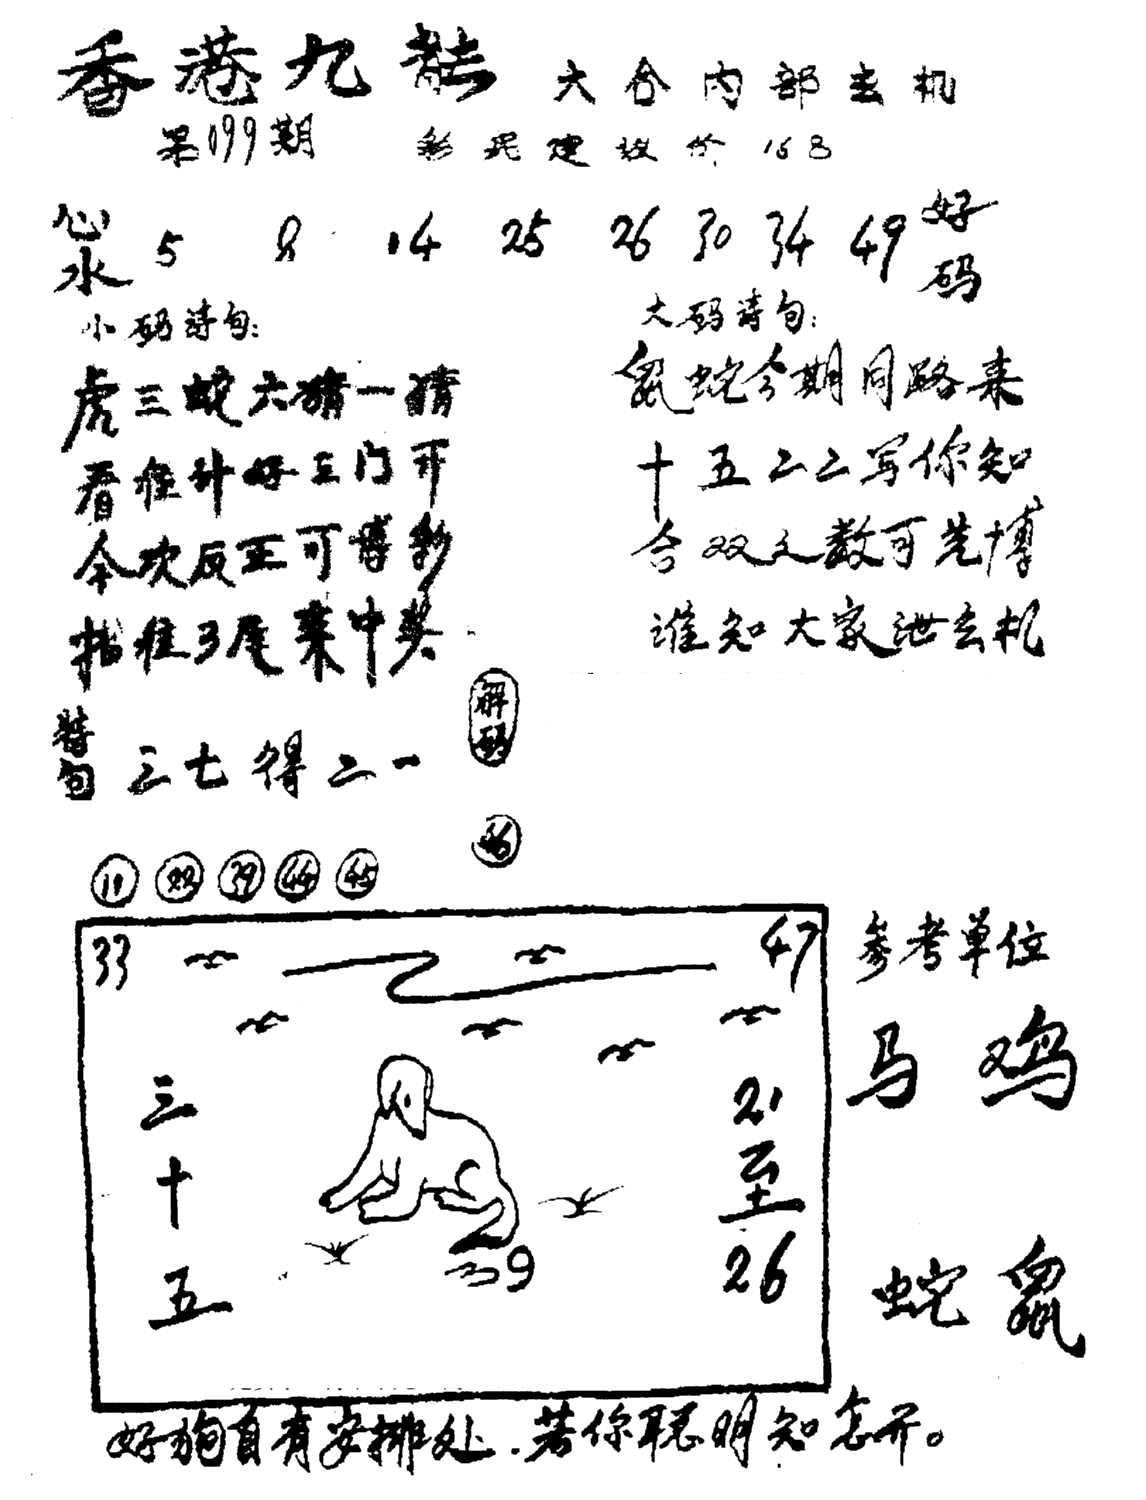 香港九龙 六合内部玄机
第199期 彩民建议价168
心水 5 8 14 25 26 30 34 49 好码
小码诗句:
虎三蛇六猜一猜
看准升好三门开
今次反正可博彩
指准3尾来中奖
大码诗句:
鼠蛇今期同路来
十五二二写你知
合双文数可先博
谁知大家泄玄机
特句 三七得二一
解码
46
11 22 39 44 45
33 47
三十五
21至26
39
参考单位
马 鸡
蛇 鼠
好狗自有安排处.若你聪明知怎开。